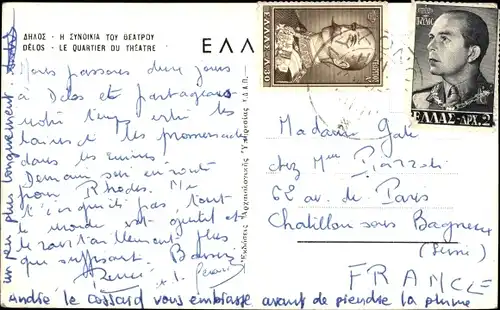 ΔΗΛΟΣ · Η ΣΥΝΟΙΚΙΑ ΤΟΥ ΘΕΑΤΡΟΥ
DÉLOS · LE QUARTIER DU THÉATRE
ΕΛΛ
Nous passons deux jours
à Délos et partageons
notre temps entre les
bains et les promenades
dans les ruines
Demain soir en route
pour Rhodes. Ne
t'inquiète pas tout
le monde est gentil et
le ravitaillement plus
que suffisant. Baisers
un peu plus longuement
André le Cossard vous embrasse avant de prendre la plume
Madame Gale
chez Mme Piazzoli
62 av. de Paris
Chatillon sous Bagneux
(Seine)
FRANCE
ΕΛΛΑΣ
ΕΛΛΑΣ-ΔΡΧ.2